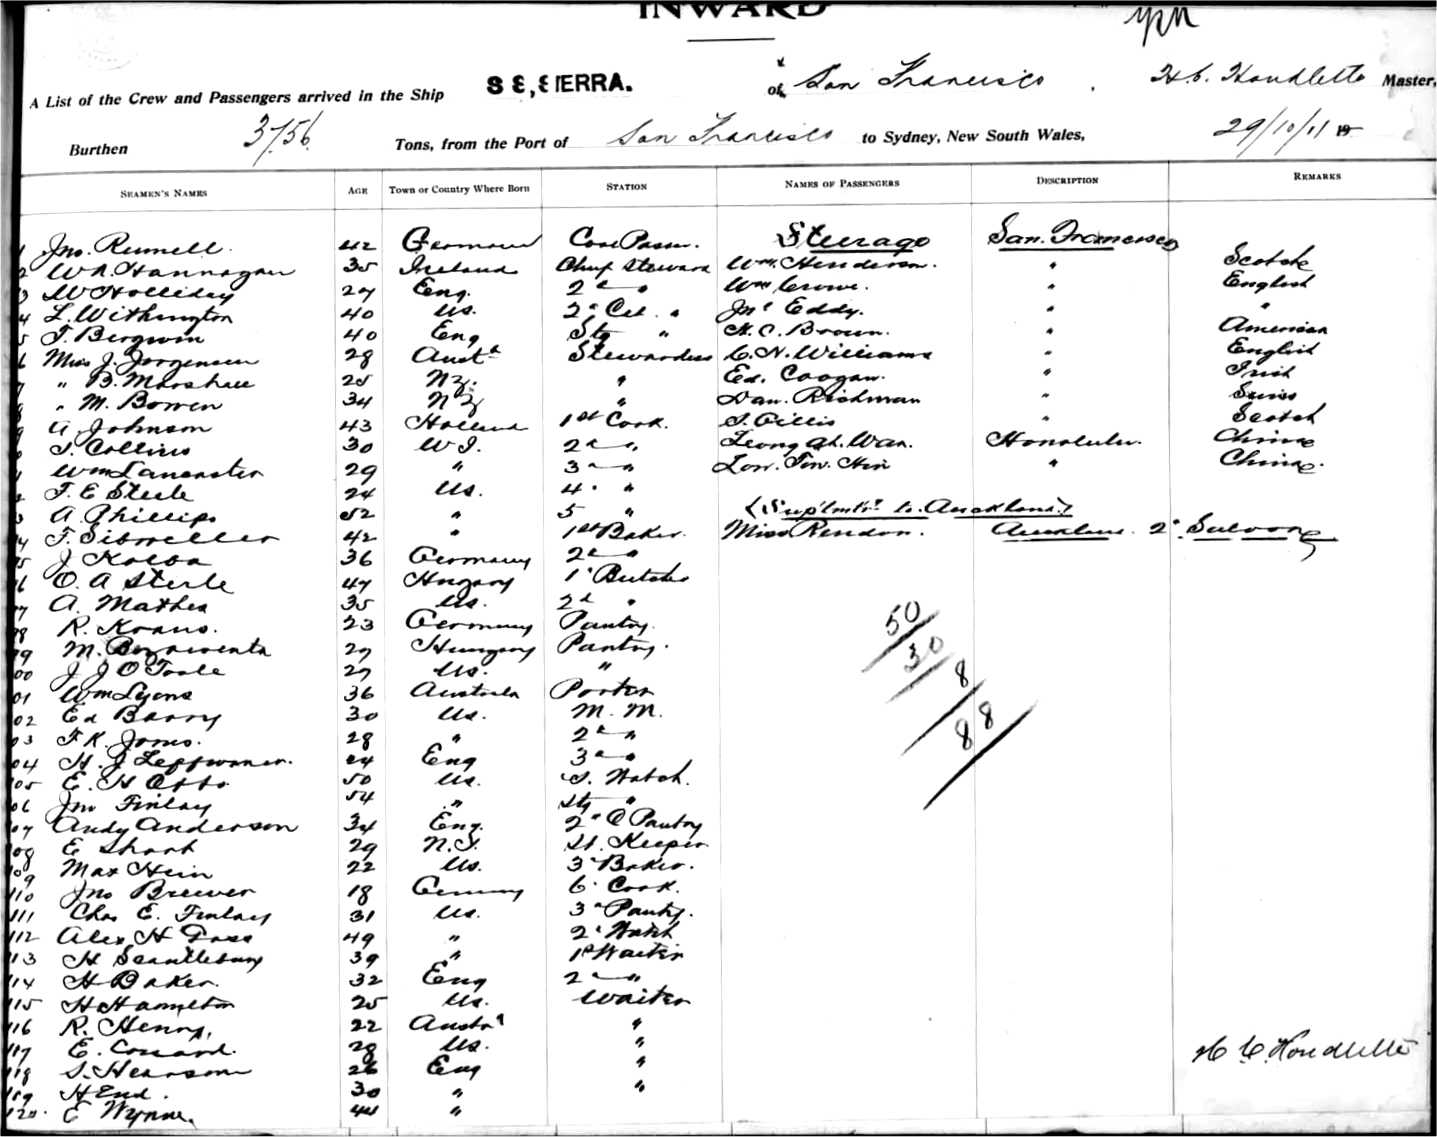 INWARD
A List of the Crew and Passengers arrived in the Ship S S, SIERRA. of San Francisco, H.C. Houdlette Master,
Burthen 3756 Tons, from the Port of San Francisco to Sydney, New South Wales, 29/10/11 19
SEAMEN'S NAMES AGE Town or Country Where Born STATION NAMES OF PASSENGERS DESCRIPTION REMARKS
1 Jno. Rumell. 42 Germany Coal Passr. Steerage San. Francisco
2 W A. Hannagan 35 Ireland Chief Steward Wm. Henderson. " Scotch
3 W Holliday 27 Eng. 2d " Wm Crowe. " English
4 L. Withington 40 Us. 2d Cel. " Jno Eddy. " "
5 T. Bergwin 40 Eng Stg " H. C. Brown. " American
6 Miss J. Jorgensen 28 Austa Stewardess C. N. Williams " English
7 " B. Marshall 25 NZ. " Ed. Coogan. " Irish
8 " M. Bowen 34 NZ " Dan. Richman " Swiss
9 A. Johnson 43 Holland 1st Cook. S. Gillis " Scotch
0 T. Collins 30 W I. 2d " Leong Ah. Wan. Honolulu. Chinese
1 Wm Lancaster 29 " 3d " Low. Tin. Hin " Chinese.
2 T. E Steele 24 Us. 4. "
3 A. Phillips 52 " 5 " (Suplmtr to Auckland)
94 T. Sibweller 42 " 1st Baker. Miss Rendon. Auckland. 2d Saloon
95 J Kolba 36 Germany 2d "
96 O. A Sterle 47 Hngary 1st Butcher
97 A. Mathea 35 Us. 2d "
98 R. Kraus. 23 Germany Pantry.
99 M. 27 Hungary Pantry.
00 J J O'Toole 27 Us. "
01 Wm Lyons 36 Australia Porter
02 Ed Barry 30 Us. M. M.
03 F K. Jones. 28 " 2d "
04 H. J 24 Eng 3d "
105 E. H Otto 50 Us. S. Watch.
06 Jno Finlay 54 " Stg "
107 Andy Anderson 34 Eng. 2d C Pantry
108 E Short 29 N.Z. St. Keeper
109 Max Hein 22 Us. 3d Baker.
110 Jno Brewer 18 Germany 6. Cook.
111 Chas E. Finlay 31 Us. 3d Pantry.
112 Alex H Doss 49 " 2d Watch
113 H Scantlebury 39 " 1st Waiter
114 H Baker. 32 Eng 2d "
115 H Hamilton 25 Us. Waiter
116 R. Henry. 22 Austra "
117 E. Conard. 28 Us. "
118 S. Hearsom 26 Eng "
119 H End. 30 " "
120. E Wynne. 44 "
50
30
8
88
H C. Houdlette